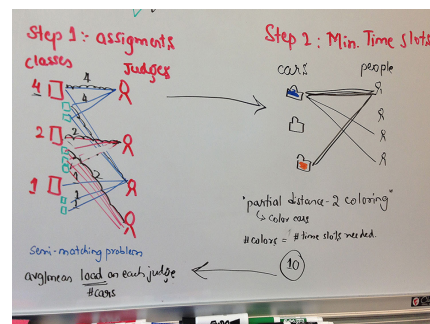 Step 1:- assigments
classes
Judges
4
4
4
2
2
2
1
1
1
semi-matching problem
avg/mean load on each judge
#cars
Step 2: Min. Time slots
cars
people
"partial distance-2 coloring"
↳ color cars
#colors = #time slots needed.
10